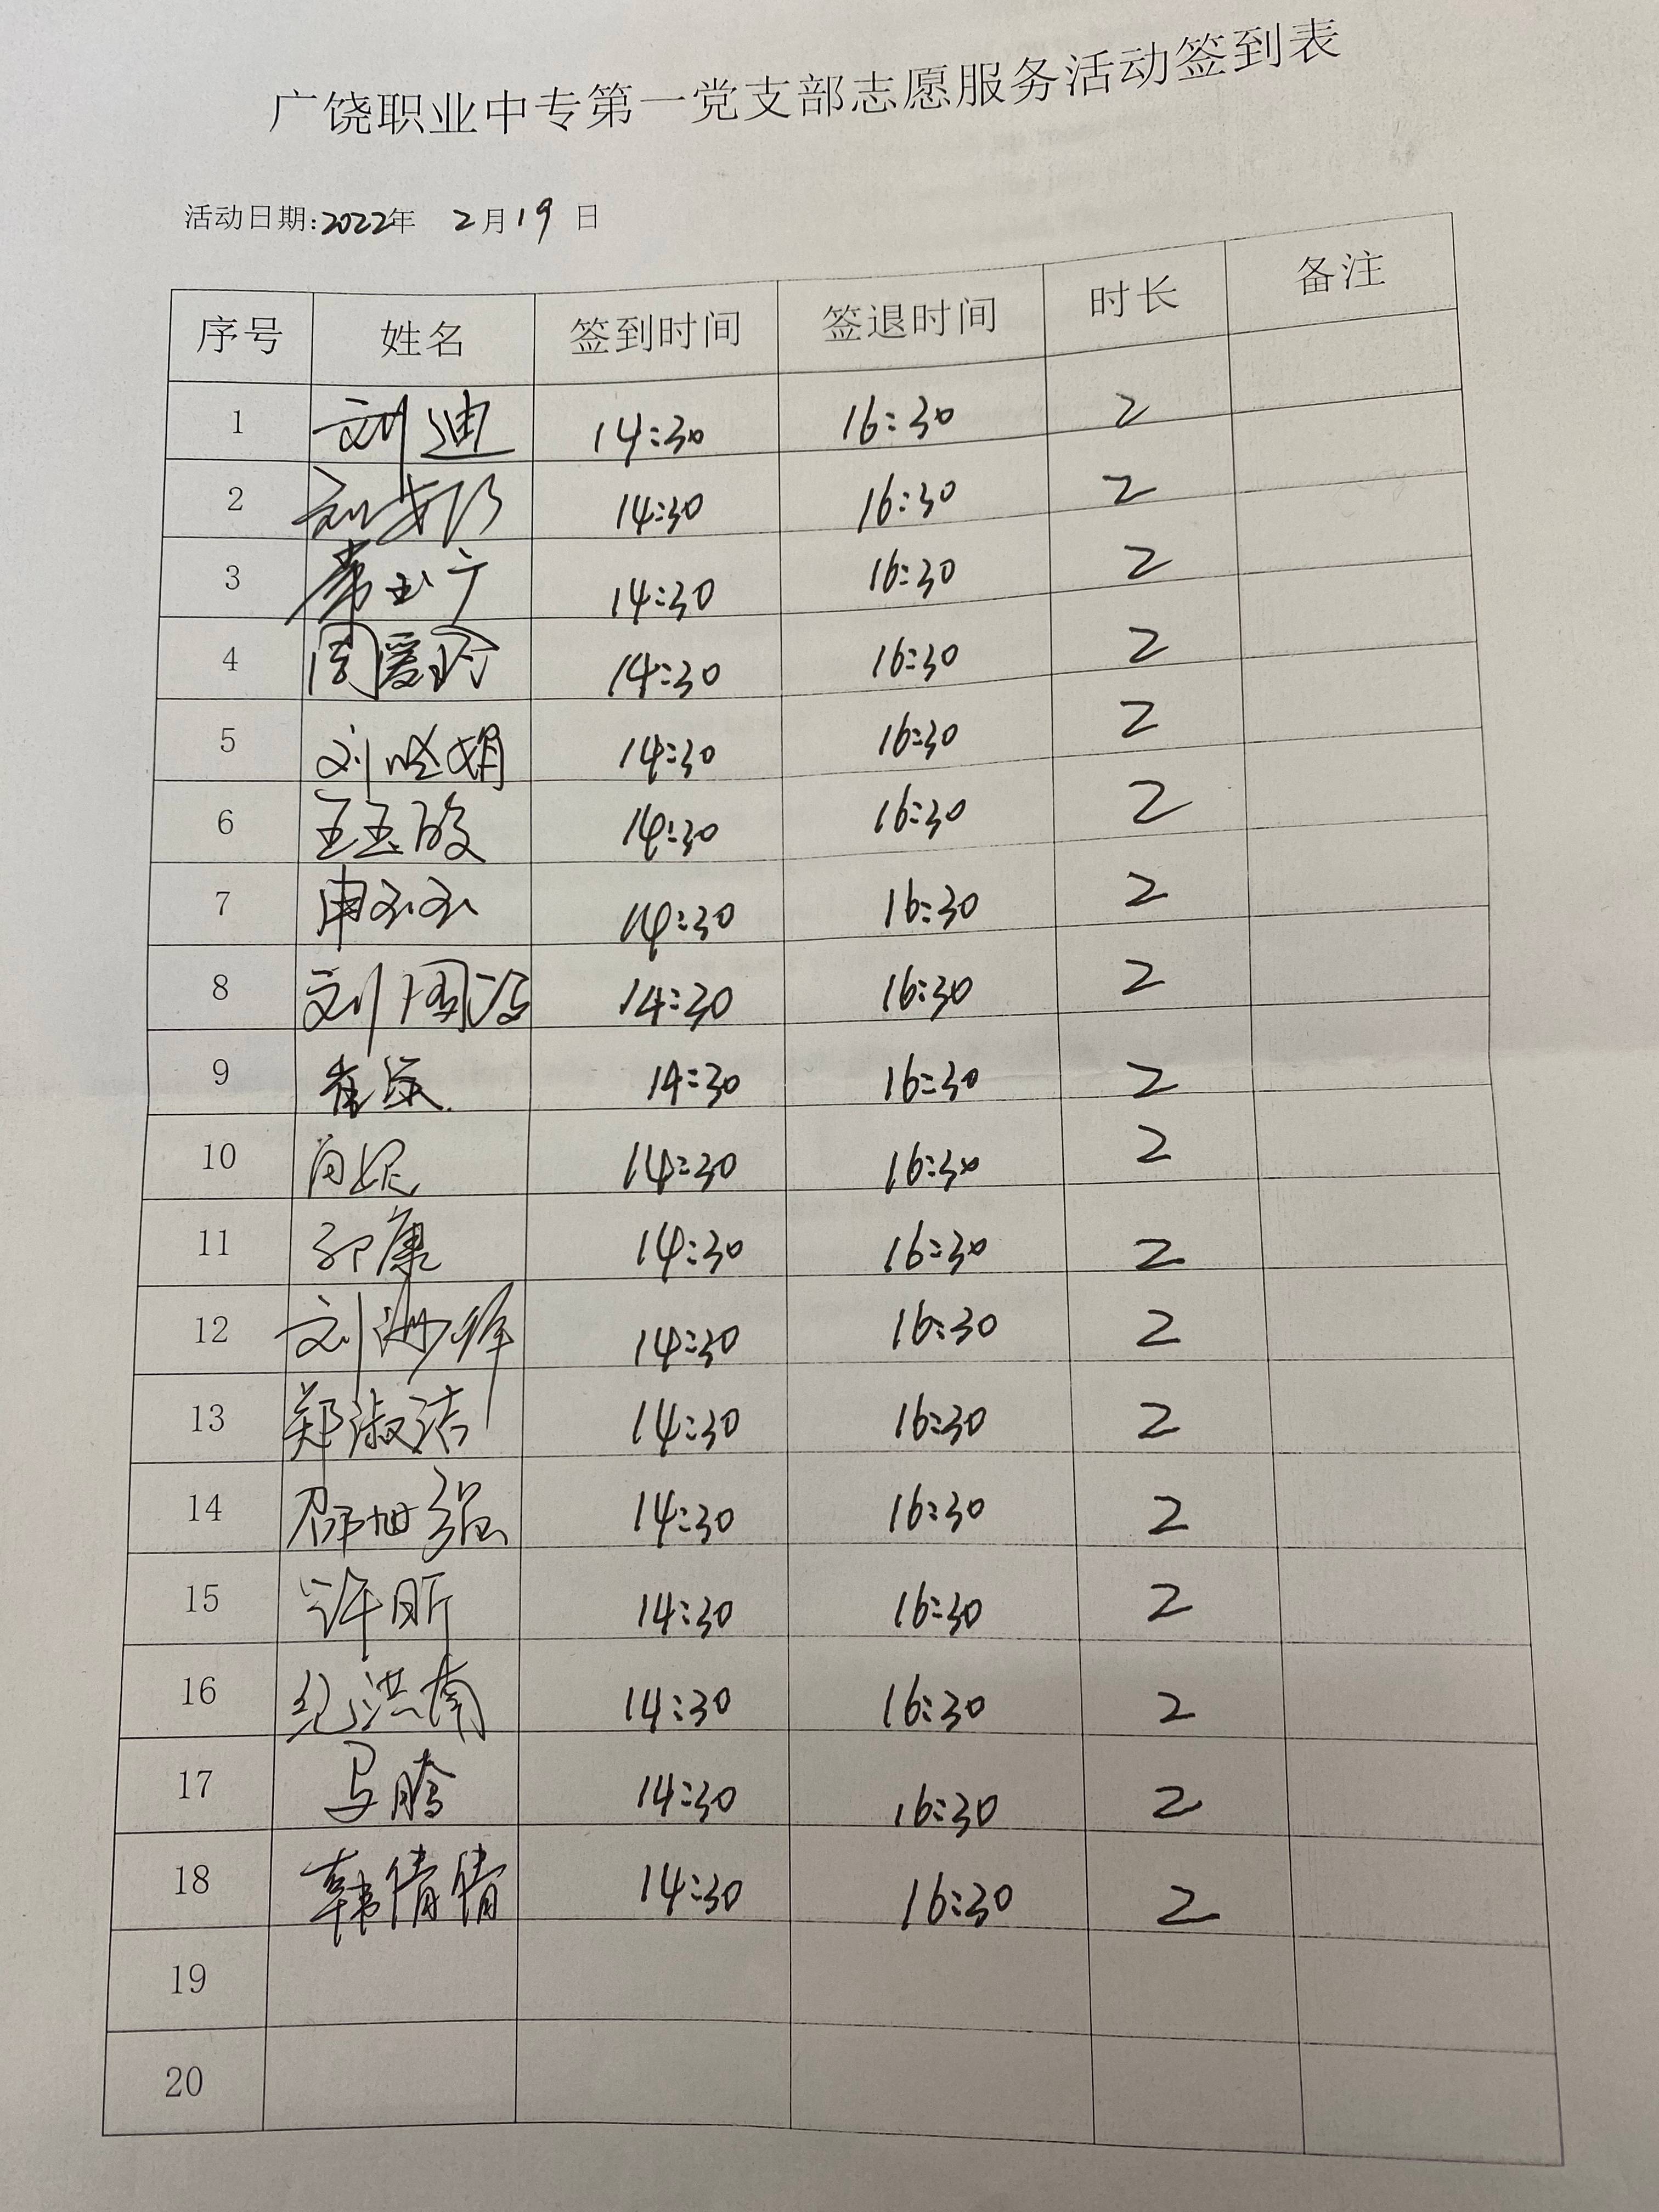 广饶职业中专第一党支部志愿服务活动签到表
活动日期:2022年 2月19日
序号 姓名 签到时间 签退时间 时长 备注
1 刘迪 14:30 16:30 2
2 14:30 16:30 2
3 14:30 16:30 2
4 周爱玲 14:30 16:30 2
5 刘晓娟 14:30 16:30 2
6 王玉欣 14:30 16:30 2
7 14:30 16:30 2
8 刘国滨 14:30 16:30 2
9 14:30 16:30 2
10 14:30 16:30 2
11 邓康 14:30 16:30 2
12 14:30 16:30 2
13 郑淑洁 14:30 16:30 2
14 邵旭强 14:30 16:30 2
15 许昕 14:30 16:30 2
16 纪洪南 14:30 16:30 2
17 马腾 14:30 16:30 2
18 韩倩倩 14:30 16:30 2
19
20